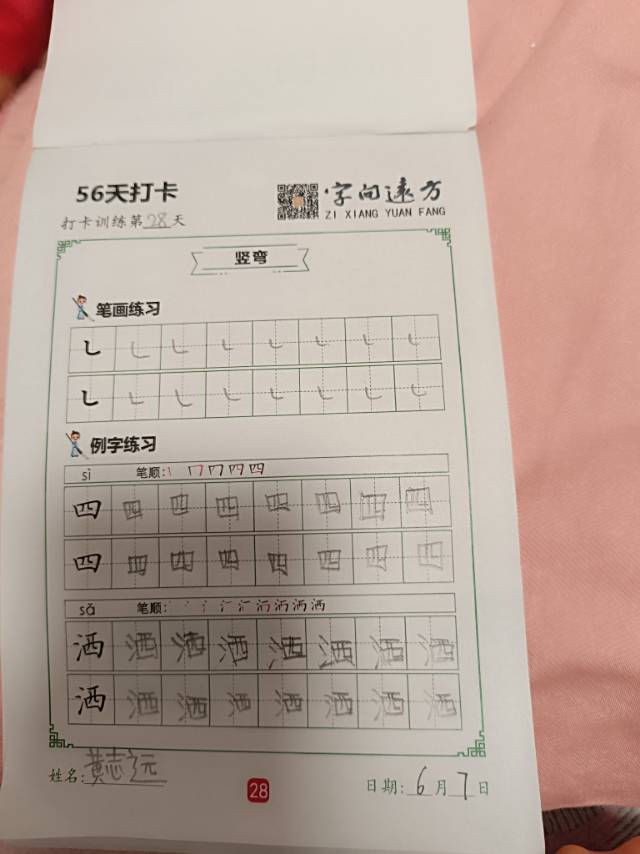 56天打卡
字向远方
ZI XIANG YUAN FANG
打卡训练第28天
竖弯
笔画练习
㇄ ㇄ ㇄ ㇄ ㇄ ㇄ ㇄ ㇄
㇄ ㇄ ㇄ ㇄ ㇄ ㇄ ㇄ ㇄
例字练习
sì 笔顺:
四 四 四 四 四 四 四 四
四 四 四 四 四 四 四 四
sǎ 笔顺:
洒 洒 洒 洒 洒 洒 洒 洒
洒 洒 洒 洒 洒 洒 洒 洒
姓名:黄志远 28 日期:6月7日